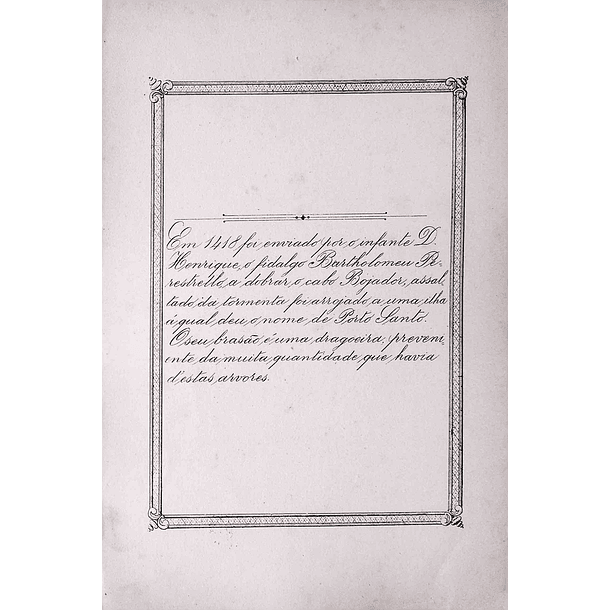 Em 1418 foi enviado por o infante D.
Henrique, o fidalgo Bartholomeu Pe-
restrello, a dobrar o cabo Bojador, assal-
tado da tormenta foi arrojado a uma ilha
á qual deu o nome de Porto Santo.
O seu brasão é uma dragoeira, preveni-
ente da muita quantidade que havia
d'estas arvores.